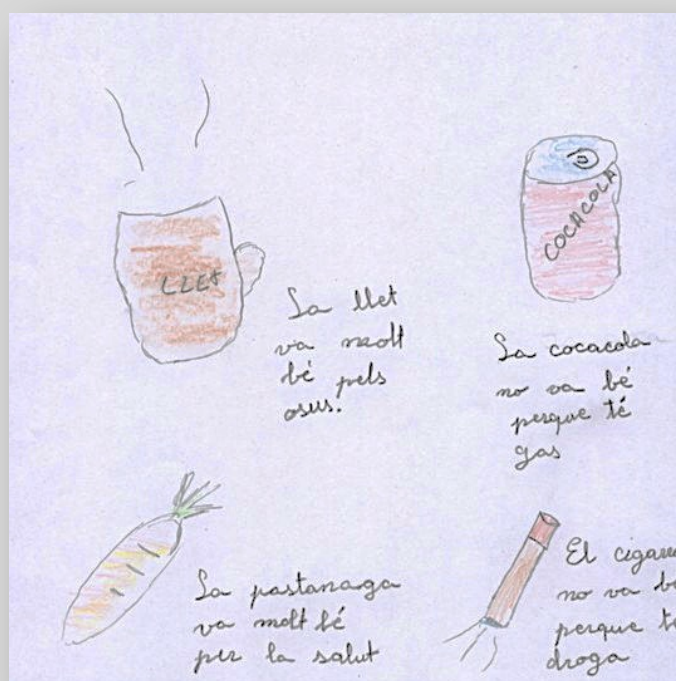 LLET
La llet
va molt
bé pels
osus.
COCACOLA
La cocacola
no va bé
perque té
gas
La pastanaga
va molt bé
per la salut
El
no va
perque
droga